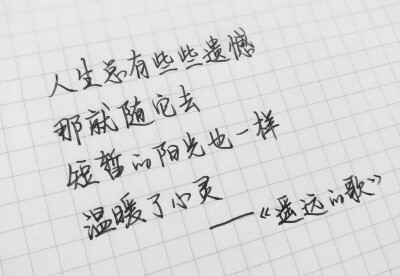 人生总有些些遗憾
那就随它去
短暂的阳光也一样
温暖了心灵
——《遥远的歌》